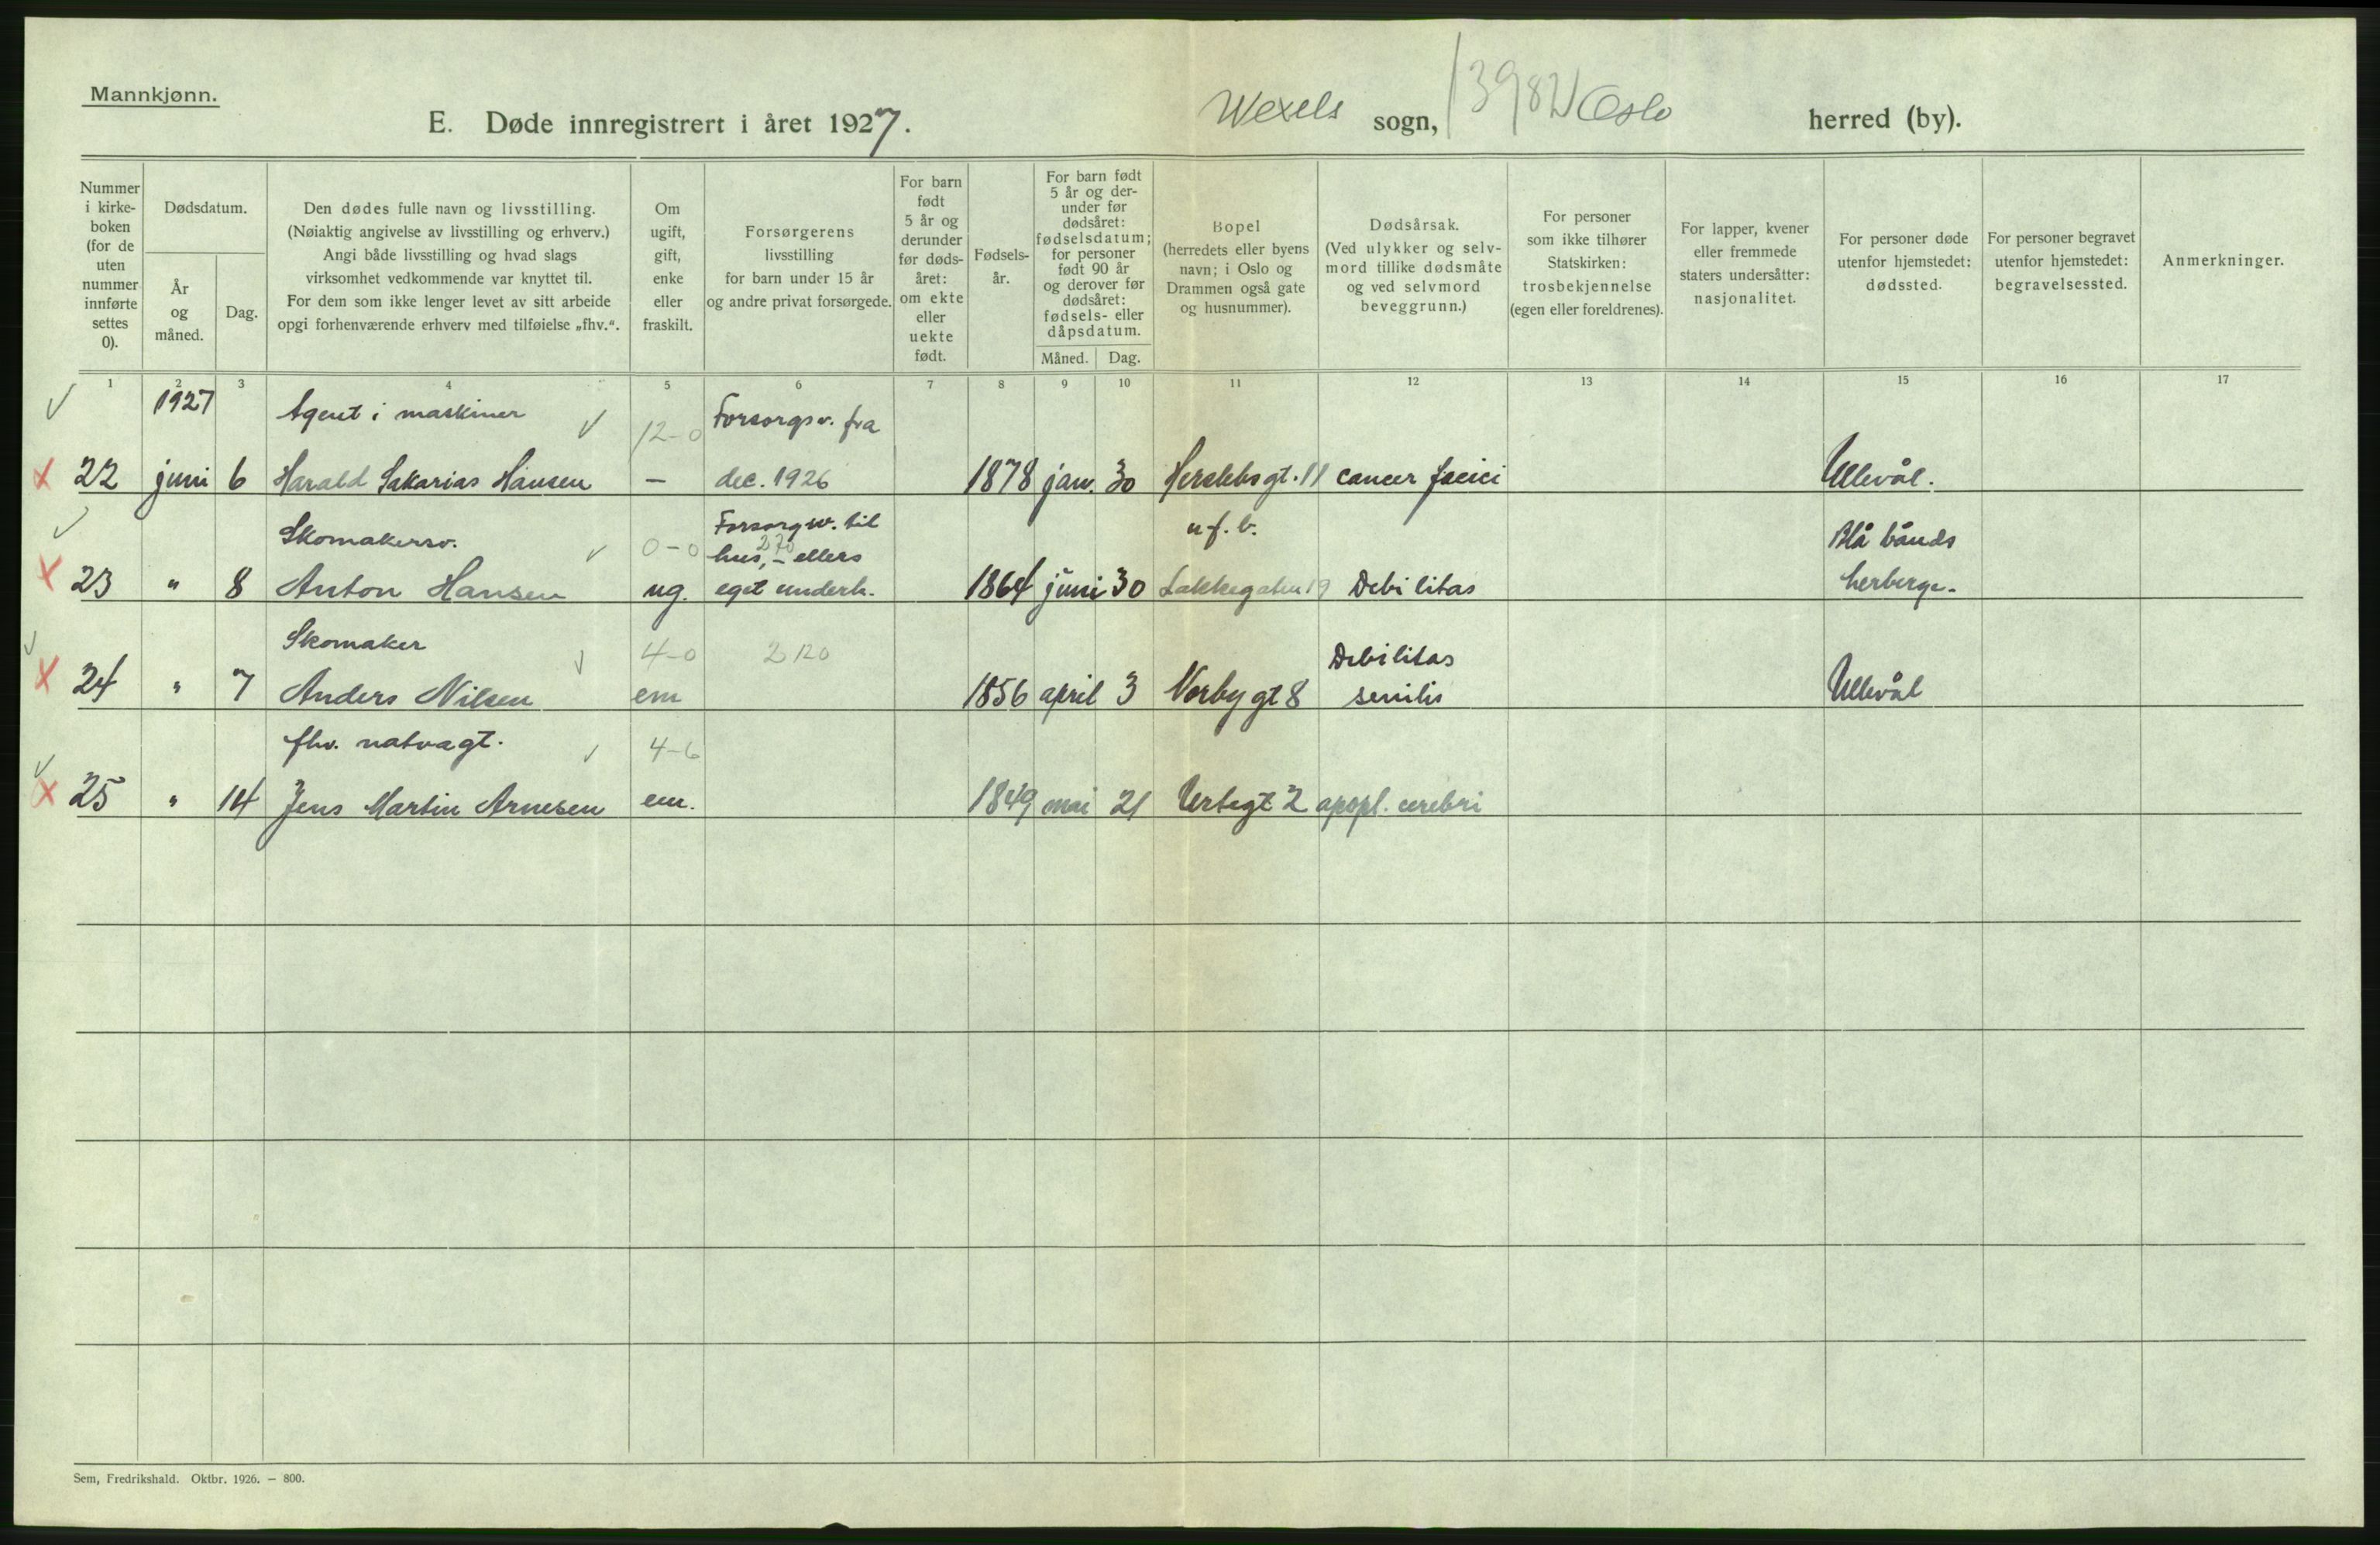 Mannkjønn.
E. Døde innregistrert i året 1927.
Wexels sogn, Oslo herred (by).
1398
Nummer i kirkeboken (for de uten nummer innførte settes 0).
Dødsdatum.
År og måned.
Dag.
Den dødes fulle navn og livsstilling.
(Nøiaktig angivelse av livsstilling og erhverv.)
Angi både livsstilling og hvad slags
virksomhet vedkommende var knyttet til.
For dem som ikke lenger levet av sitt arbeide
opgi forhenværende erhverv med tilføielse „fhv.“.
Om ugift, gift, enke eller fraskilt.
Forsørgerens
livsstilling
for barn under 15 år
og andre privat forsørgede.
For barn født 5 år og derunder før dødsåret: om ekte eller uekte født.
Fødsels-
år.
For barn født 5 år og der-
under før dødsåret:
fødselsdatum;
for personer født 90 år
og derover før dødsåret:
fødsels- eller dåpsdatum.
Måned.
Dag.
Bopel
(herredets eller byens
navn; i Oslo og
Drammen også gate
og husnummer).
Dødsårsak.
(Ved ulykker og selv-
mord tillike dødsmåte
og ved selvmord
beveggrunn.)
For personer
som ikke tilhører
Statskirken:
trosbekjennelse
(egen eller foreldrenes).
For lapper, kvener
eller fremmede
staters undersåtter:
nasjonalitet.
For personer døde
utenfor hjemstedet:
dødssted.
For personer begravet
utenfor hjemstedet:
begravelsessted.
Anmerkninger.
1 2 3 4 5 6 7 8 9 10 11 12 13 14 15 16 17
1927 Agent i maskiner 12-0 Forsorgsv. fra
22 juni 6 Harald Sakarias Hansen — dec. 1926 1878 jan. 30 Herslebsgt. 11 cancer faciei Ullevål.
Skomakersv. 0-0 Forsorgsv. til u. f. b. Blå bånds
hus, - ellers 270
23 " 8 Anton Hansen ug. eget underh. 1864 juni 30 Lakkegaten 19 Debilitas herberge.
Skomaker 4-0 2120 Debilitas
24 " 7 Anders Nilsen em 1856 april 3 Norbygt 8 senilis Ullevål
fhv. natvagt. 4-6
25 " 14 Jens Martin Arnesen em. 1849 mai 21 Urtegt 2 apopl. cerebri
Sem, Fredrikshald. Oktbr. 1926. — 800.